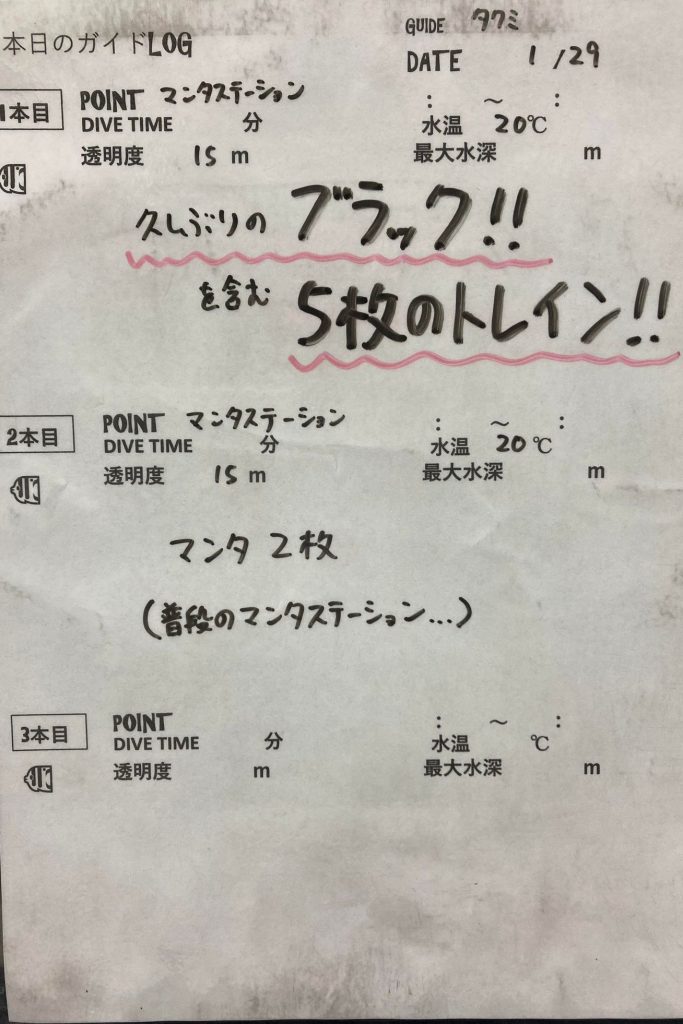 本日のガイドLOG
GUIDE タクミ
DATE 1/29
1本目 POINT マンタステーション : ～ :
DIVE TIME 分 水温 20℃
透明度 15 m 最大水深 m
久しぶりの ブラック!!
を含む 5枚のトレイン!!
2本目 POINT マンタステーション : ～ :
DIVE TIME 分 水温 20℃
透明度 15 m 最大水深 m
マンタ 2枚
(普段のマンタステーション...)
3本目 POINT : ～ :
DIVE TIME 分 水温 ℃
透明度 m 最大水深 m